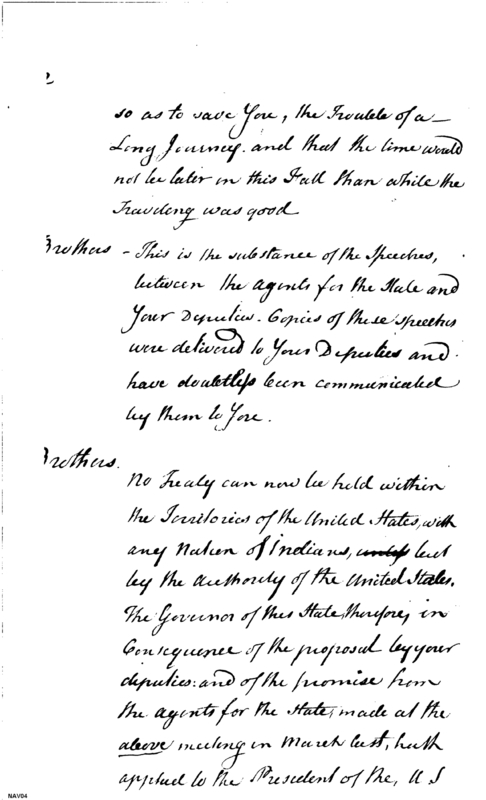 2
so as to save You, the Trouble of a
Long Journey. and that the time would
not be later in this Fall than while the
Traveling was good
Brothers – This is the substance of the Speeches,
between the agents for the State and
Your Deputies. Copies of these speeches
were delivered to Your Deputies and
have doubtless been communicated
by them to You.
Brothers.
No Treaty can now be held within
the Territories of the United States, with
any Nation of Indians, unless but
by the authority of the United States.
The Governor of this State, therefore, in
Consequence of the proposal by your
deputies: and of the promise from
the agents for the State, made at the
above meeting in March last, hath
applied to the President of the, U S
NAV04